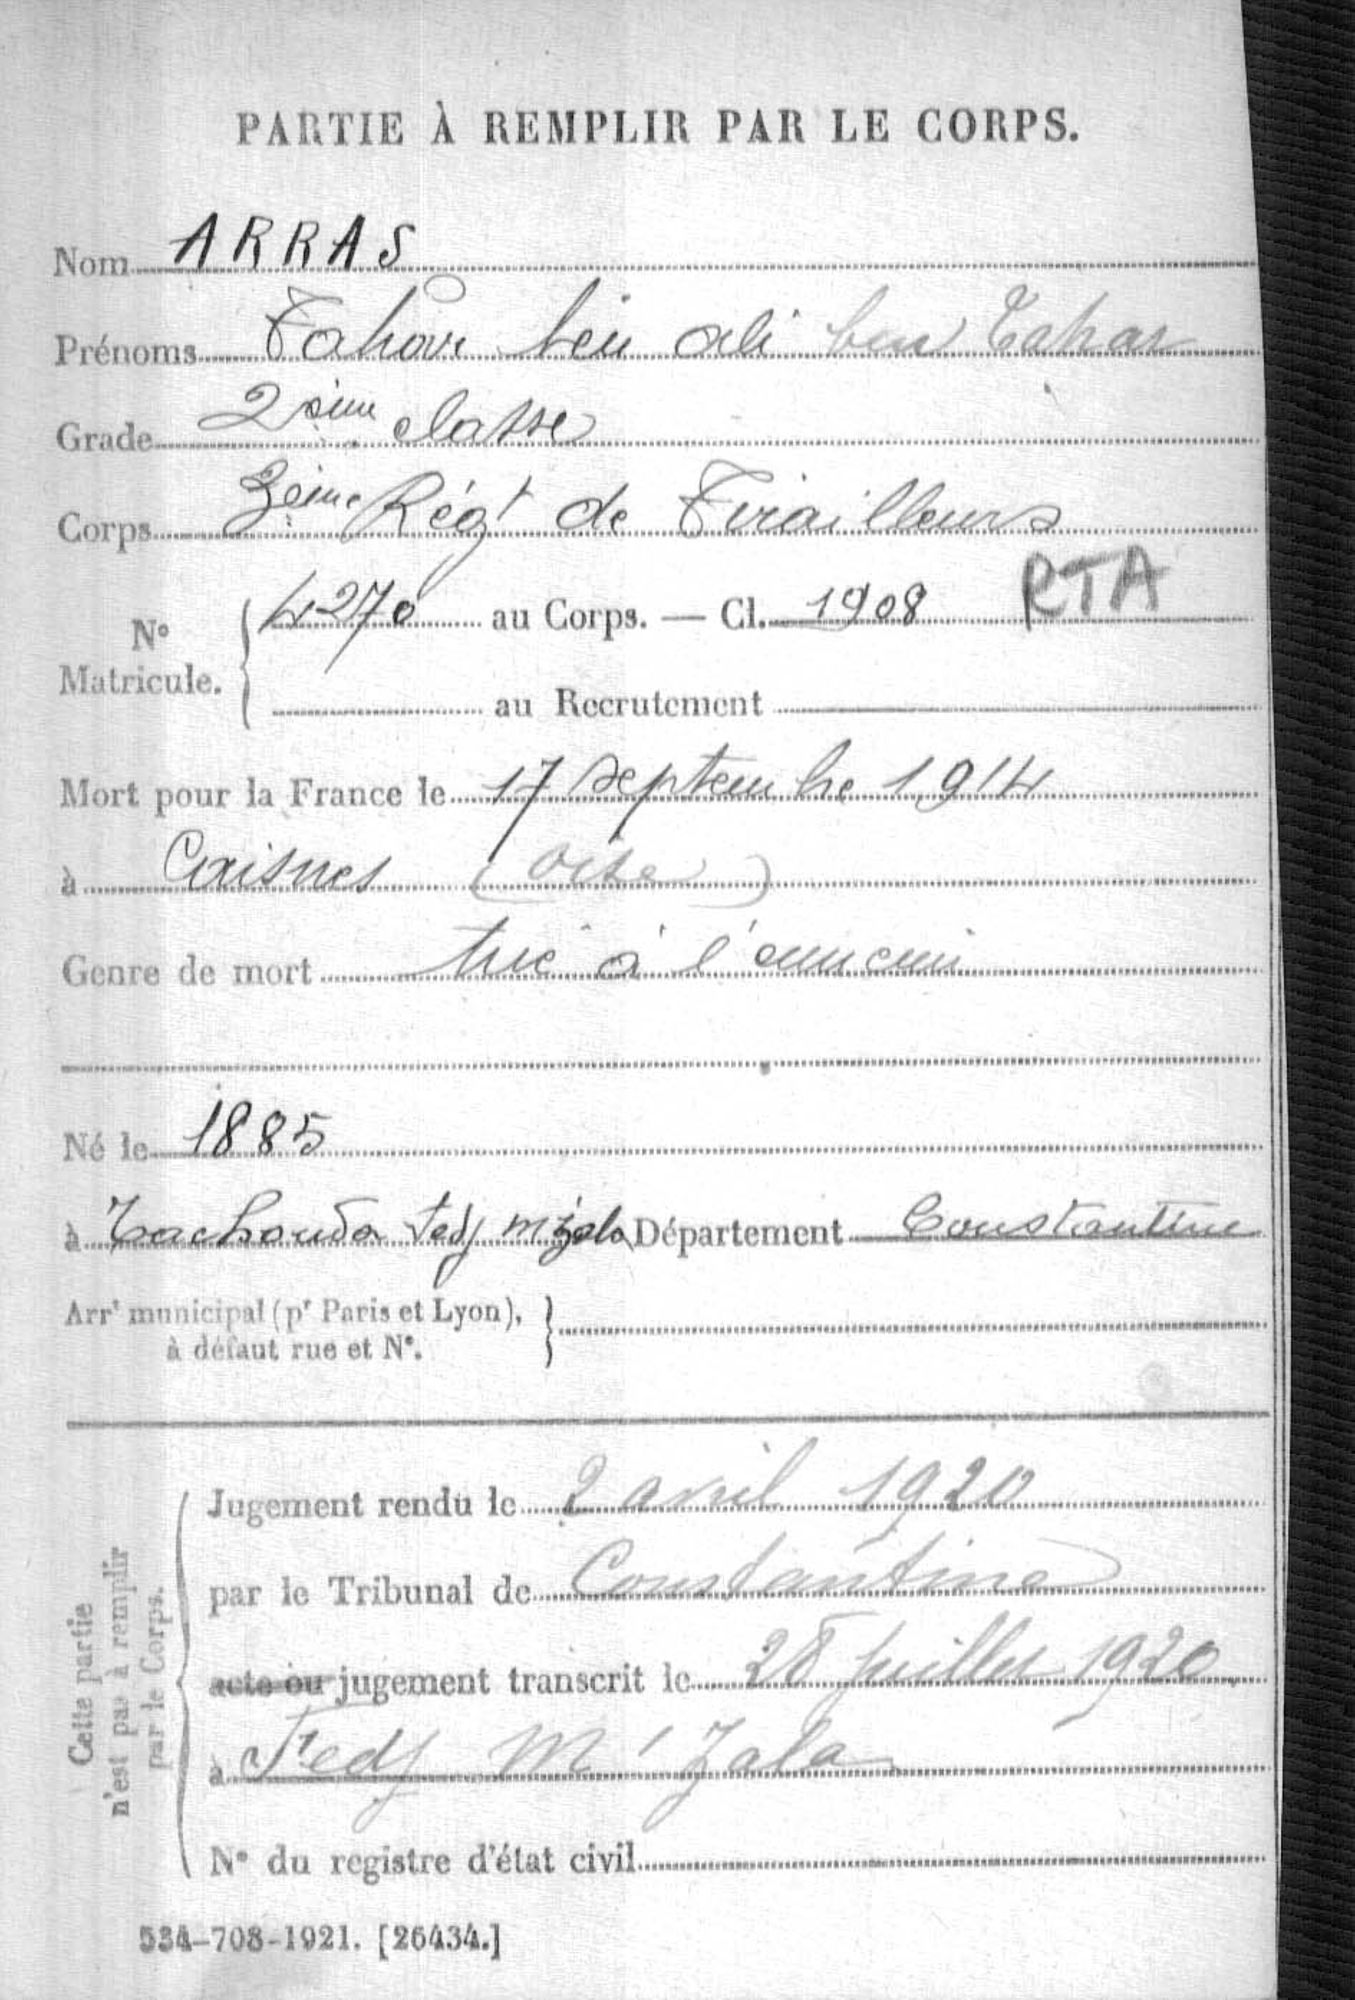 PARTIE À REMPLIR PAR LE CORPS.
Nom ARRAS
Prénoms Tahar ben ali ben Tahar
Grade 2ème classe
Corps 3ème Régt de Tirailleurs
RTA
4270 au Corps. — Cl. 1908
N° Matricule.
au Recrutement
Mort pour la France le 17 septembre 1914
à (Oise)
Genre de mort tué à l'ennemi
Né le 1885
à Tachouda Fedj M'zala Département Constantine
Arrt municipal (pr Paris et Lyon),
à défaut rue et N°.
Cette partie
n'est pas à remplir
par le Corps.
Jugement rendu le 2 avril 1920
par le Tribunal de Constantine
acte ou jugement transcrit le 28 juillet 1920
à Fedj M'Zala
N° du registre d'état civil
534-708-1921. [26434.]